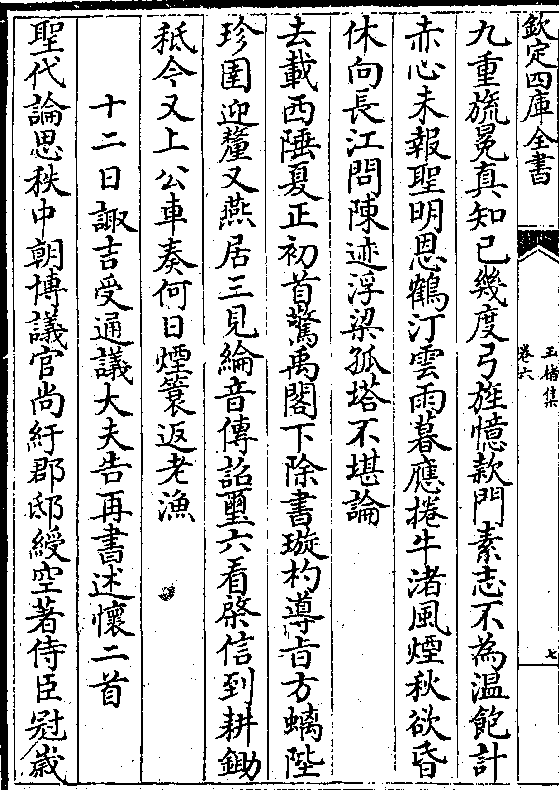 欽定四庫全書
玉楮集
卷六
七
九重旒冕真知已幾度弓旌憶款門素志不為温飽計
赤心未報聖明恩鶴汀雲雨暮應捲牛渚風煙秋欲昏
休向長江問陳迹浮梁孤塔不堪論
去載西陲夏正初首驚禹閣下除書璇杓導㫖方螭陛
珍圉迎釐又燕居三見綸音傳詔璽六看棨信到耕鋤
秪今又上公車奏何日煙簑返老漁
十二日諏吉受通議大夫告再書述懷二首
聖代論思秩中朝博議官尚紆郡邸綬空著侍臣冠歳